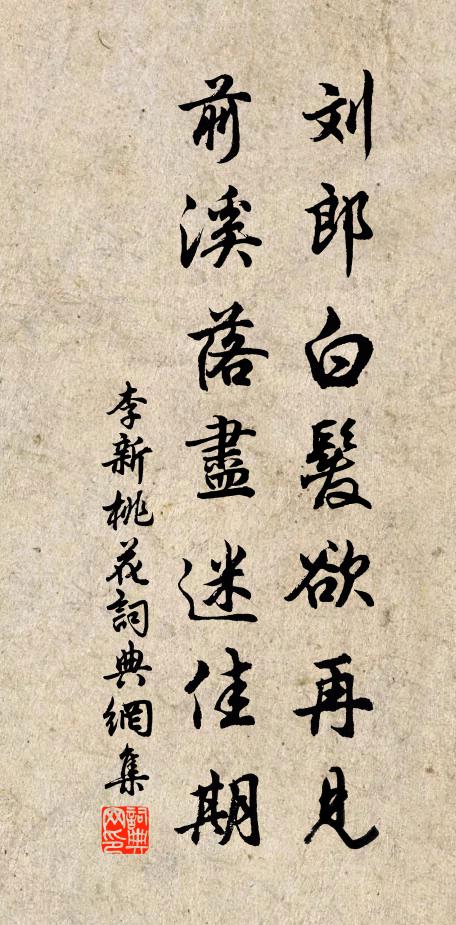 刘郎白髮欲再見
前溪落盡迷佳期
李新桃花詞典網集
詞典網印